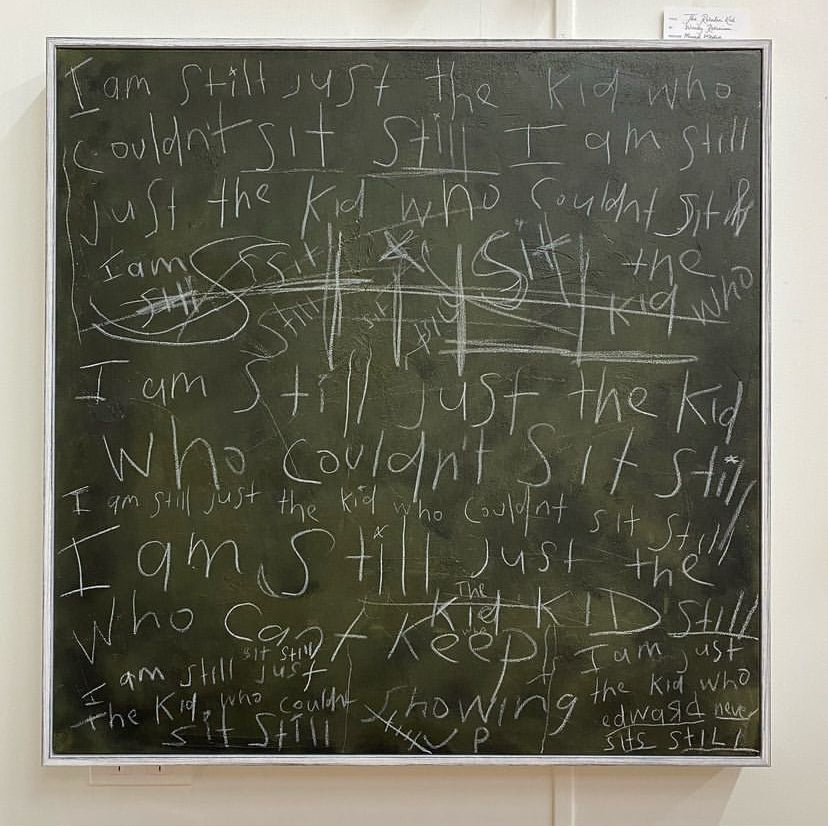 The Random Kid
I am still just the kid who
couldn't sit still I am still
just the kid who couldnt sit
I am Ssit Sit the
still still sit still kid who
I am still just the kid
who couldn't sit still
I am still just the kid who couldn't sit still
I am still just the
The
Kid KID still
who can't keep
sit still
I am still just
the kid who couldnt
sit still
showing
up
I am just
the kid who
edward never
sits still